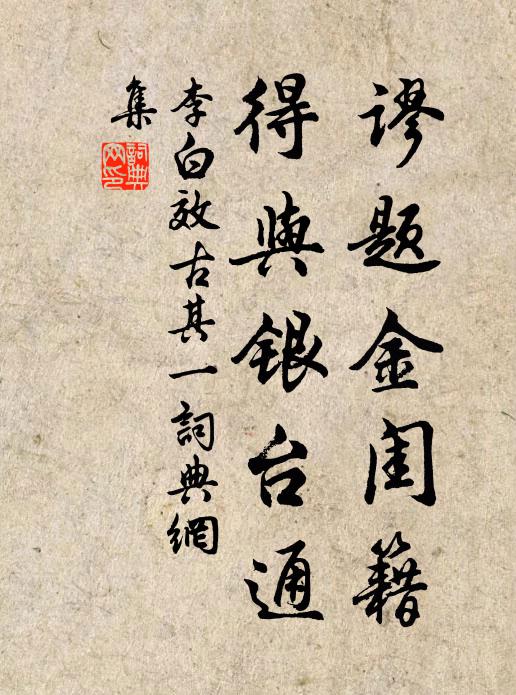 谬题金闺籍
得與银台通
李白效古其一詞典網
集
詞典網印